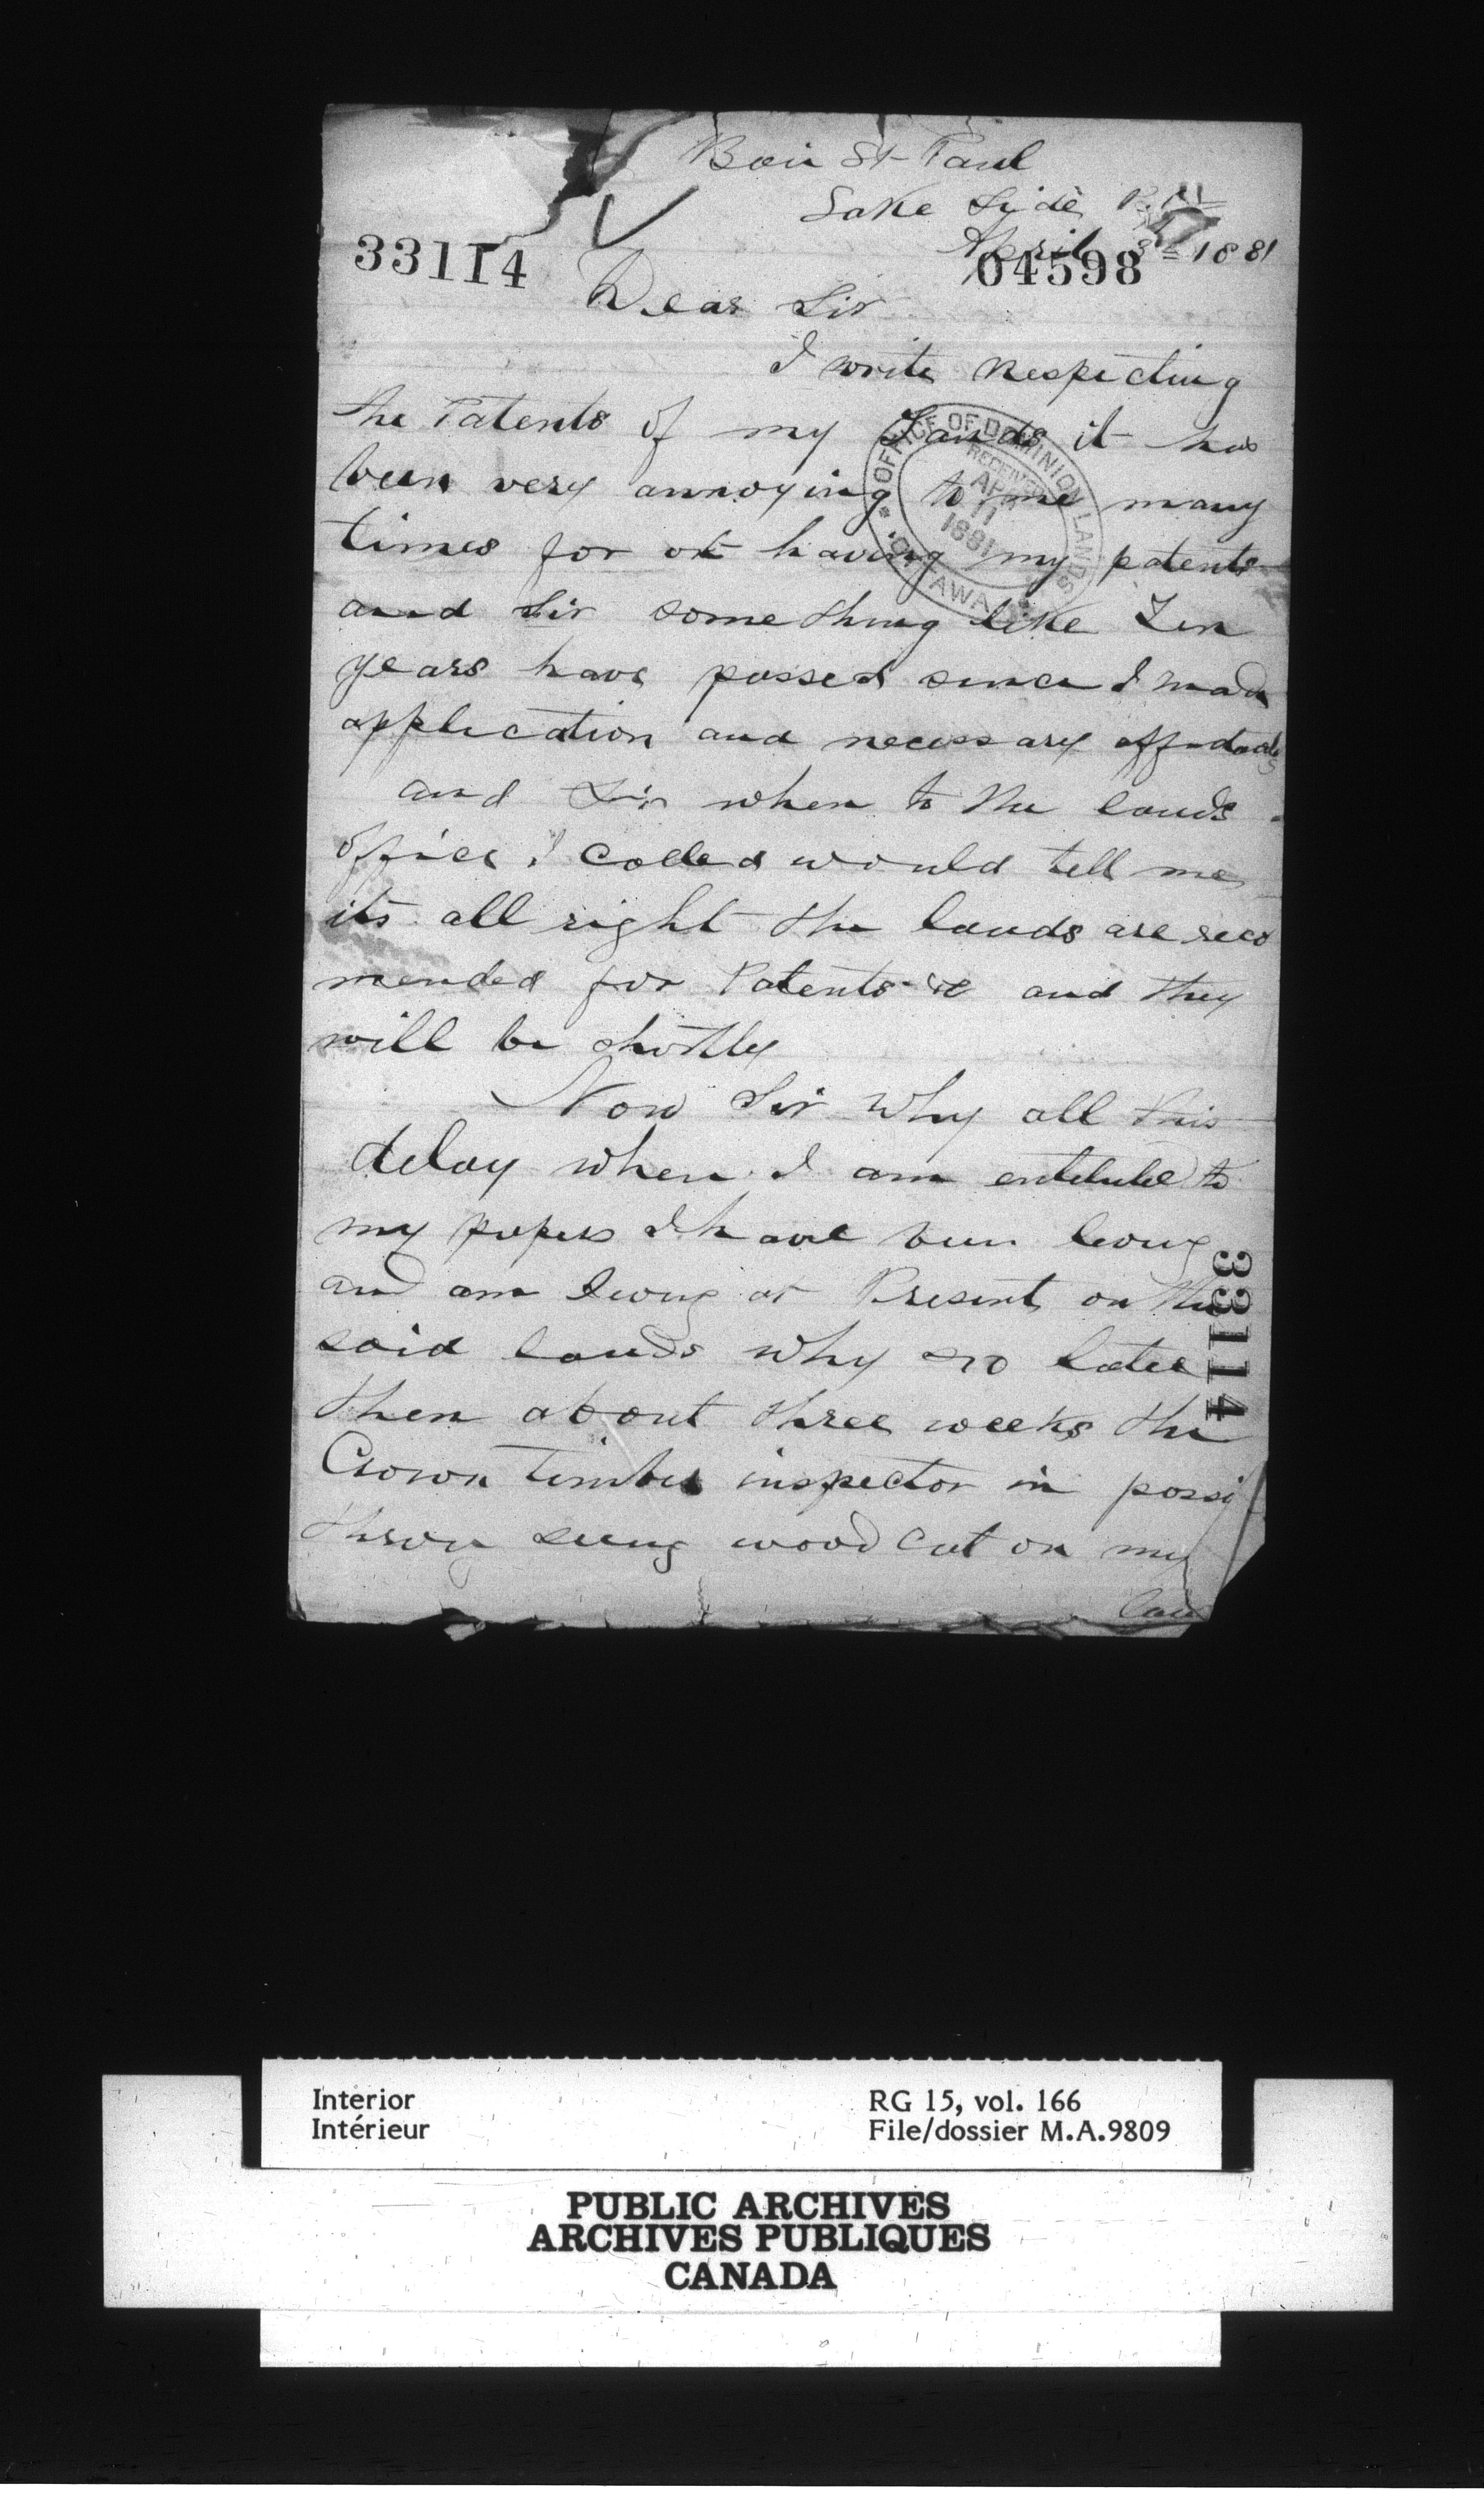 Baie St-Paul
Lake Side P.M
April 3= 1881
33114
04598
Dear Sir
I write Respecting
the Patents of my Lands it has
been very annoying to me many
times for ot having my patents
and Sir some thing like Ten
years have passed since I made
application and necessary affidavits
and Sir when to the lands
office I called would tell me
its all right the lands are reco
mended for Patents &c and they
will be shortly
Now Sir why all this
delay when I am entituled to
my papers I have been living
and am living at Present on the
said lands why no later
then about three weeks the
Crown timber inspector in passi
throug seeing wood cut on my
OFFICE OF DOMINION LANDS
RECEIVED
APR
11
1881
* OTTAWA *
33114
Interior
Intérieur
RG 15, vol. 166
File/dossier M.A.9809
PUBLIC ARCHIVES
ARCHIVES PUBLIQUES
CANADA